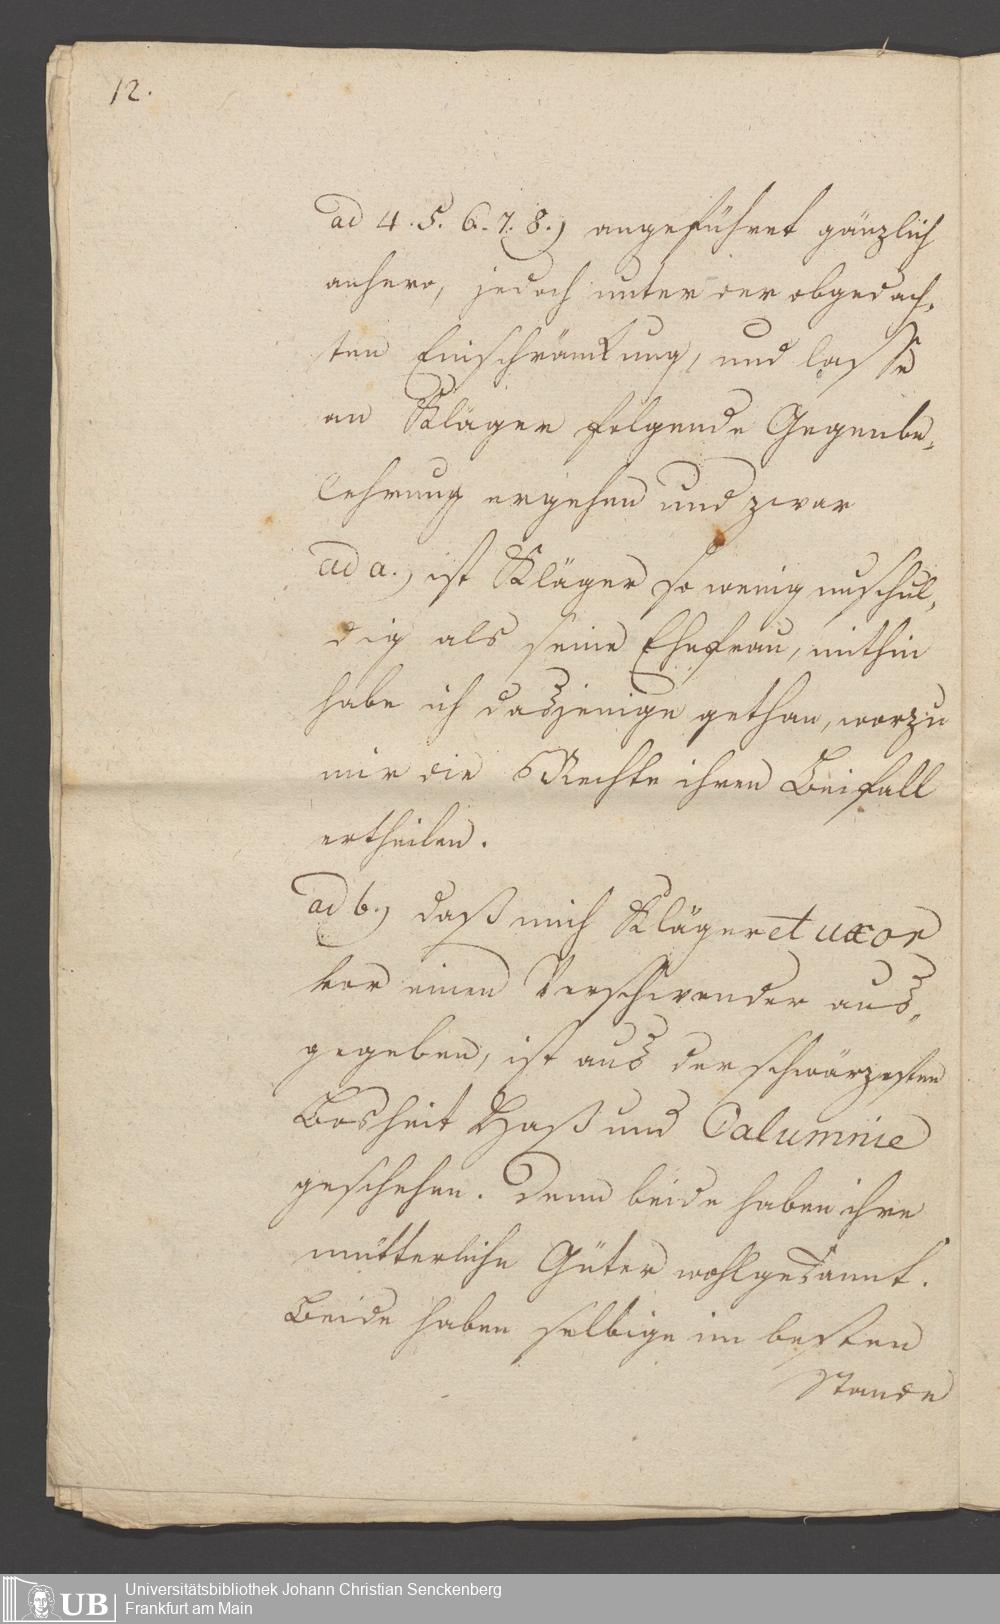 12.
ad 4. 5. 6. 7. 8.) angeführet gänzlich
anhero, jedoch unter der obgedach-
ten Einschränkung, und lasse
an Kläger folgende Gegenbe-
lehrung ergehen und zwar
ad a.) ist Kläger so wenig unschul-
dig als seine Ehefrau, mithin
habe ich dasjenige gethan, worzu
mir die Rechte ihren Beifall
ertheilen.
ad b.) daß mich Kläger et uxor
vor einen Verschwender aus-
gegeben, ist aus der schwärzesten
Bosheit Haß und Calumnie
geschehen. Denn beide haben ihre
mütterliche Güter wohlgekannt.
Beide haben selbige im besten
Stande
Universitätsbibliothek Johann Christian Senckenberg
UB Frankfurt am Main